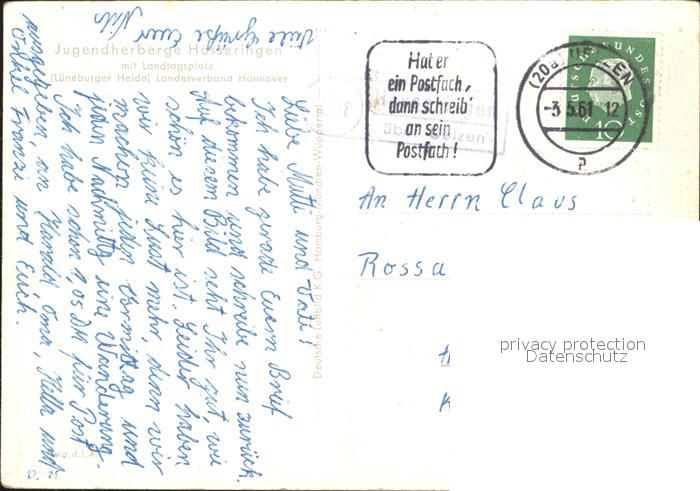 Jugendherberge Hösseringen
mit Landtagsplatz
(Lüneburger Heide) Landesverband Hannover
Liebe Mutti und Vati!
Ich habe gerade Euern Brief
bekommen und schreibe nun zurück.
Auf diesem Bild seht Ihr gut, wie
schön es hier ist. Leider haben
wir keine Lust mehr, denn wir
machen jeden Vormittag und
jeden Nachmittag eine Wanderung.
Ich habe schon 1,05 DM für Post
ausgegeben, an Harald, Oma, Hella und
Onkel Franze und Euch.
Viele Grüße Euer
Nils
Deutsche Luftbild K.G. Hamburg-München-Wuppertal
Hat er
ein Postfach,
dann schreib'
an sein
Postfach!
über Uelzen
(20a) UELZEN
-3.5.61 12
p
DEUTSCHE BUNDESPOST
10
An Herrn Claus
Rossa
privacy protection
Datenschutz